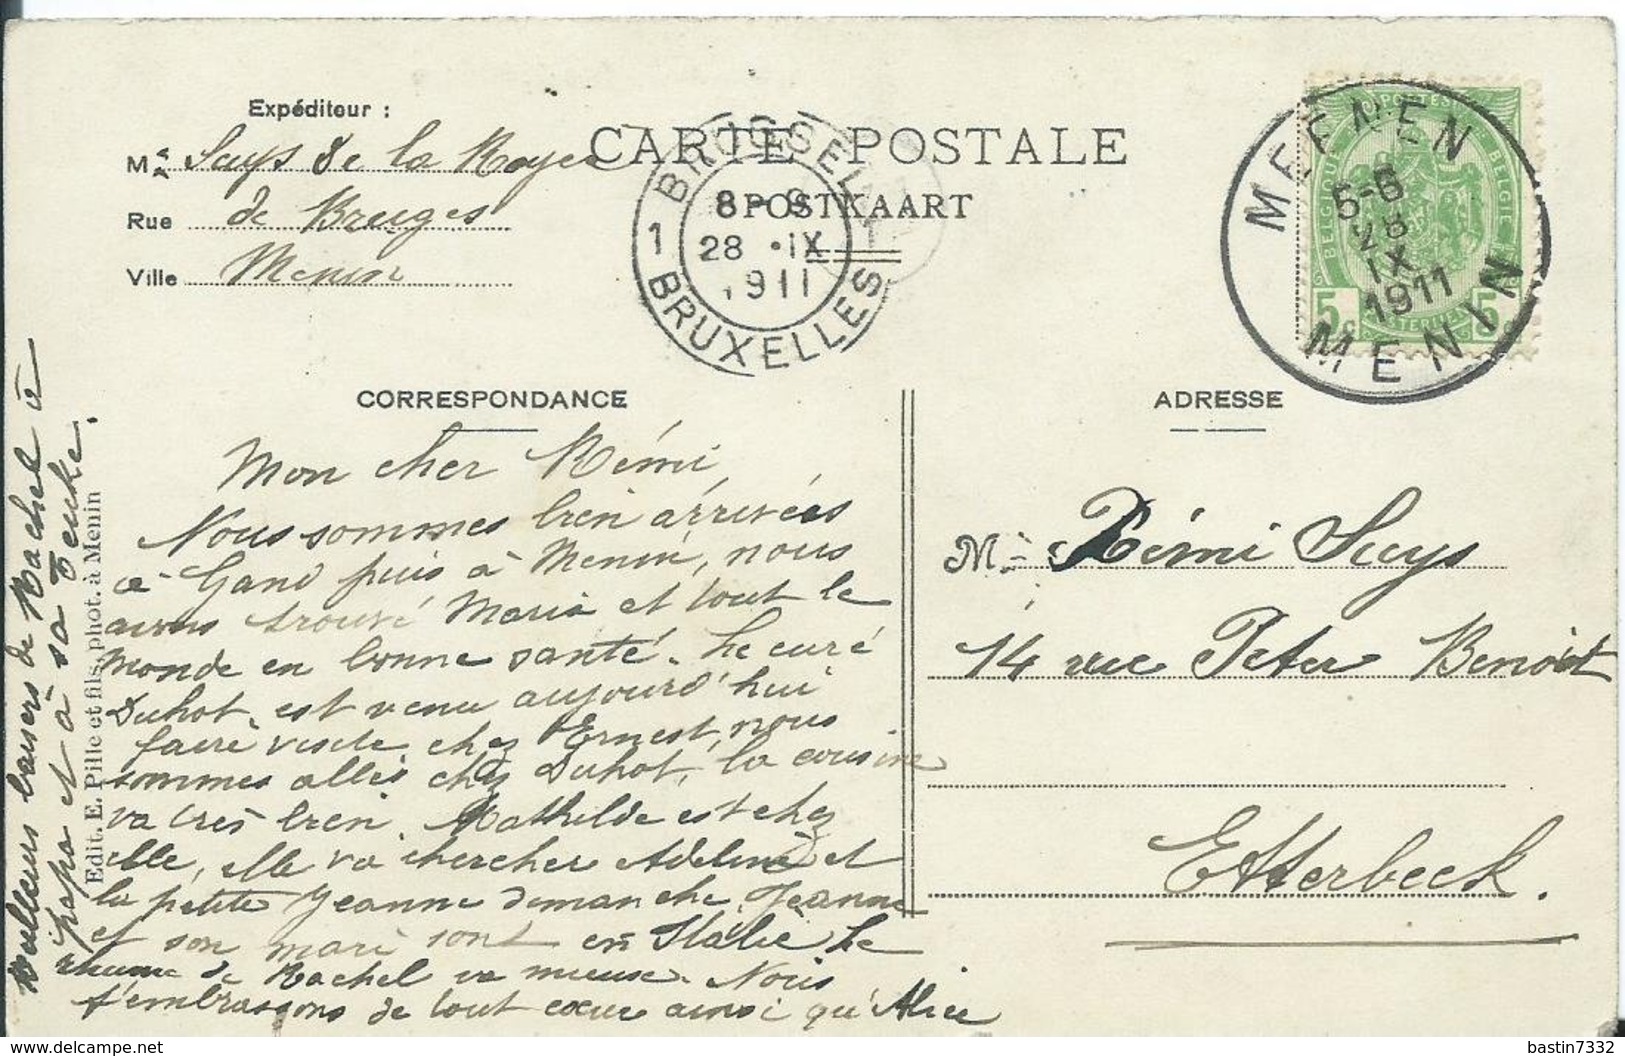 Expéditeur :
M Suys de la Royer
Rue de Bruges
Ville Menin
CARTE POSTALE
POSTKAART
1 BRUSSEL 1
8-9
28 .IX
1911
BRUXELLES
MEENEN
5-6
28
IX
1911
MENIN
BELGIQUE
BELGIE
5c 5c
CORRESPONDANCE
ADRESSE
Mon cher Rémi,
Nous sommes bien arrivées
à Gand puis à Menin, nous
avons trouvé Maria et tout le
monde en bonne santé. Le curé
Duhot, est venu aujourd'hui
faire visite chez Ernest, nous
sommes allés chez Duhot, la cousine
va très bien. Mathilde est chez
elle, elle va chercher Adeline et
la petite Jeanne dimanche, Jeanne
et son mari sont en Italie Le
rhume de Rachel va mieux. Nous
t'embrassons de tout cœur ainsi qu'Alice
Meilleurs baisers de Rachel à
papa et à sa
Edit. E. Pille et fils, phot. à Menin
Mr Rémi Suys
14 rue Peter Benoit
Etterbeek.
bastin7332